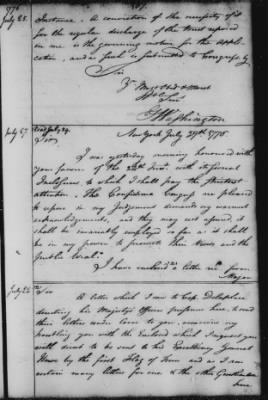 1776
July 25.
Instance. A conviction of the necessity of it
for the regular discharge of the trust reposed
in me is the governing motive for the appli-
cation, and as such is submitted to Congress by
Sir
Yr Most Obd
Ser
G Washington
July 27.
Read July 29.
New York July 27th 1776.
Sir
I was yesterday morning honoured with
your favor of the 24th Inst. with its several
Inclosures to which I shall pay the strictest
attention. The Confidence Congress are pleased
to repose in my Judgement demands my warmest
acknowledgements, and they may rest assured, it shall
be invariably employed so far as it shall
be in my power to promote their Views and the
public weal.
I have enclosed a letter from
Major
July 26th
Sir
A letter which I saw to Capt Delaplace
denoting his Majesty's Officers prisoners here, to send
their letters under cover to you, occasions my
troubling you with the Enclosed which I request you
will direct to be sent to his Excellency General
Howe by the first Flag of Truce and as I am
certain many letters for me & the other Gentlemen
here